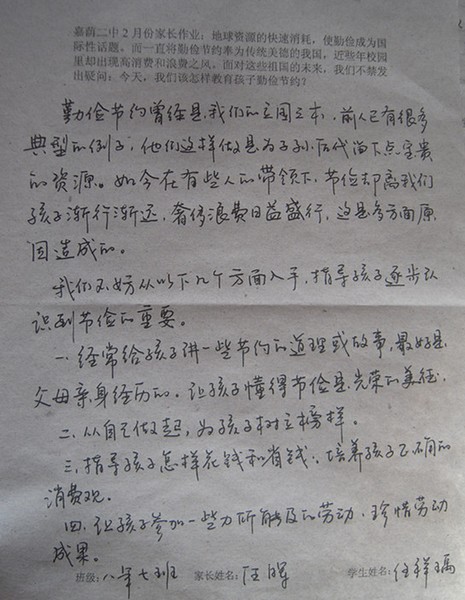 嘉荫二中2月份家长作业:地球资源的快速消耗,使勤俭成为国
际性话题。而一直将勤俭节约奉为传统美德的我国,近些年校园
里却出现高消费和浪费之风。面对这些祖国的未来,我们不禁发
出疑问:今天,我们该怎样教育孩子勤俭节约?
勤俭节约曾经是我们的立国之本,前人已有很多
典型的例子,他们这样做是为子孙后代留下点宝贵
的资源。如今在有些人的带领下,节俭却离我们
孩子渐行渐远,奢侈浪费日益盛行,这是多方面原
因造成的。
我们不妨从以下几个方面入手,指导孩子逐步认
识到节俭的重要。
一.经常给孩子讲一些节约的道理或故事,最好是
父母亲身经历的。让孩子懂得节俭是光荣的美德.
二.从自己做起,为孩子树立榜样。
三.指导孩子怎样花钱和省钱,培养孩子正确的
消费观。
四.让孩子参加一些力所能及的劳动,珍惜劳动
成果。
班级:八年七班 家长姓名:汪晖 学生姓名:任祥